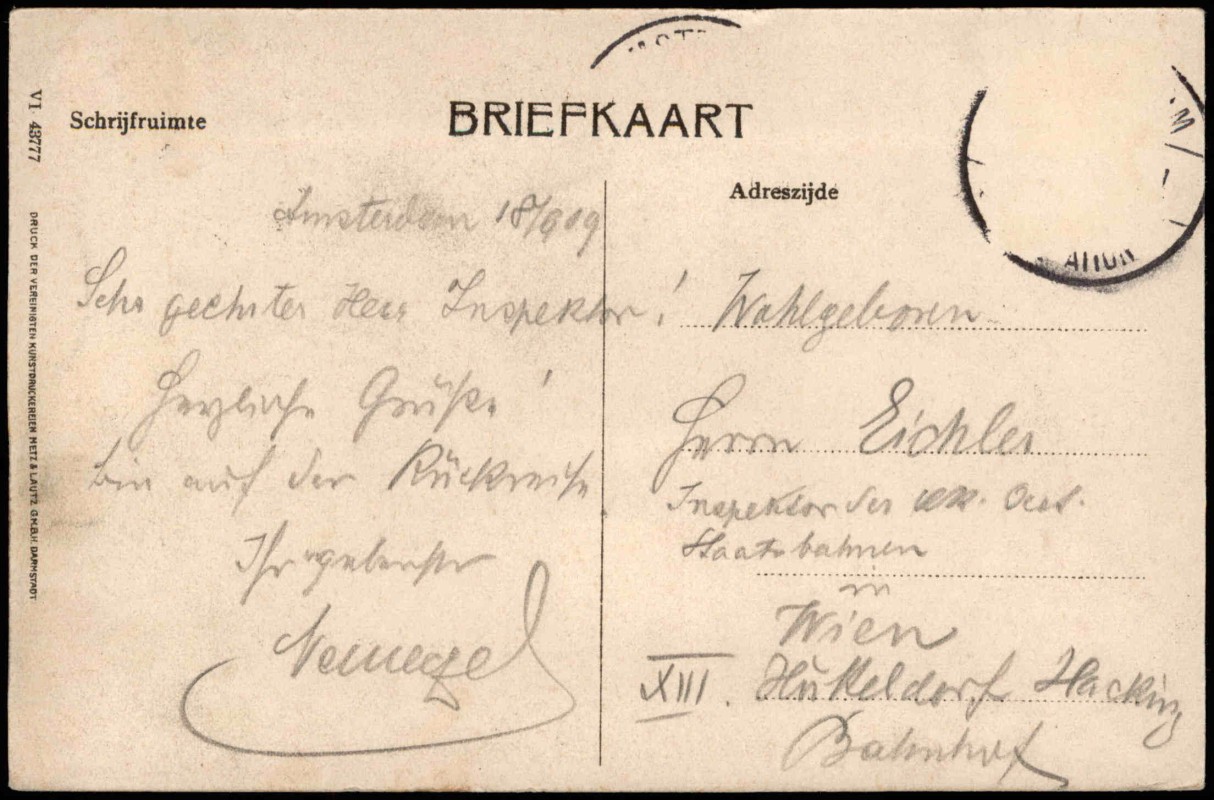 BRIEFKAART
Schrijfruimte
Adreszijde
VI 43777
DRUCK DER VEREINIGTEN KUNSTDRUCKEREIEN METZ & LAUTZ G.M.B.H. DARMSTADT
Amsterdam 18/9 09
Sehr geehrter Herr Inspektor!
Herzliche Grüße!
bin auf der Rückreise
Ihr ergebenster
Wohlgeboren
Herrn Eichler
Inspektor der kk. Oest.
Staatsbahnen
in
Wien
XIII. Hütteldorf Hacking
Bahnhof